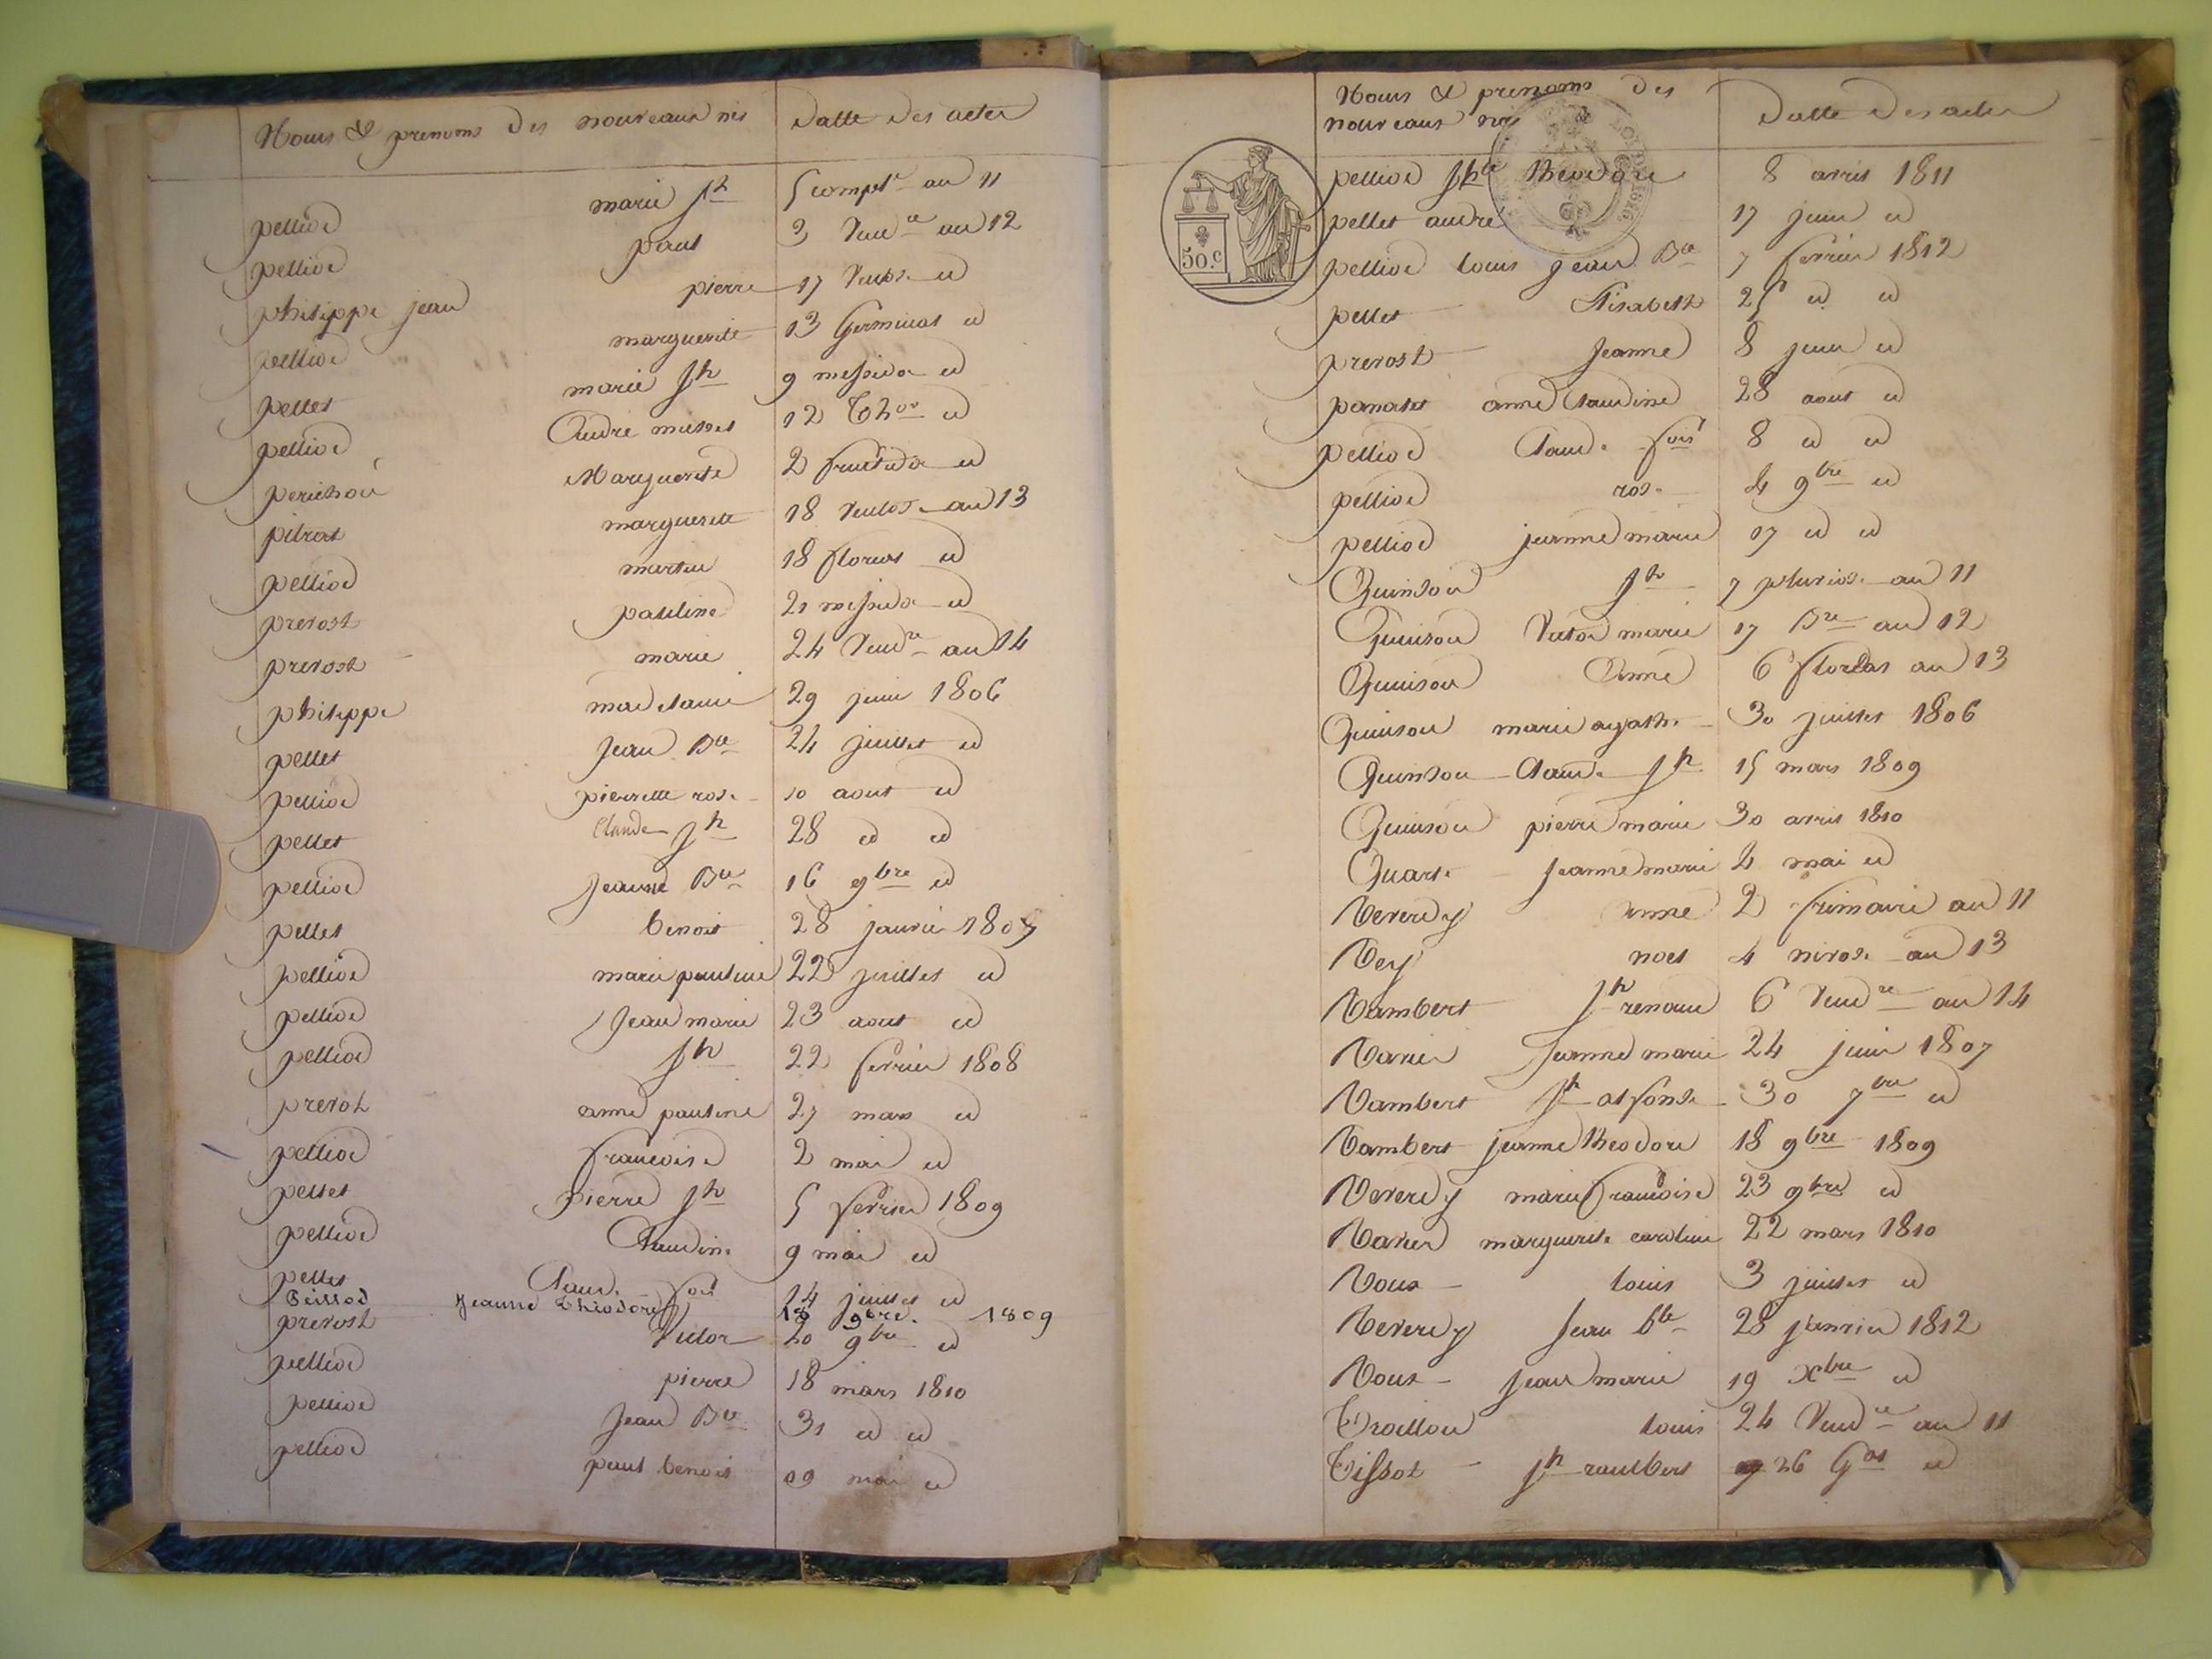 Noms & prenoms des nouveaux nés Datte des actes
pelliod marie Jh 5 compl.re an 11
pelliod paul 3 Vend.re an 12
philippe jean pierre 17 Ventose id
pelliod marguerite 13 Germinal id
pellet marie Jh 9 messidor id
pelliod André michel 12 Th.or id
perichon Marguerite 2 fructidor id
pitrat marguerite 18 Ventose an 13
pelliod martin 18 floreal id
prevost pauline 21 messidor id
prevost marie 24 Vend.re an 14
philippe madelaine 29 juin 1806
pellet Jean Bte 24 juillet id
pelliod pierrette rose 10 aout id
pellet Claude Jh 28 id id
pelliod Jeanne Bte 16 9bre id
pellet benoit 28 janvier 1807
pelliod marie pauline 22 juillet id
pelliod Jean marie 23 aout id
pelliod Jh 22 fevrier 1808
prevot anne pauline 27 mars id
pelliod francoise 2 mai id
pellet pierre Jh 5 fevrier 1809
pelliod Claudine 9 mai id
pellet Claude fois 14 juillet id
Peillod Jeanne Théodore 18 9bre. 1809
prevost Victor 20 9bre id
pelliod pierre 18 mars 1810
pelliod Jean Bte 31 id id
pelliod paul benoit 09 mai id
Noms & prenoms des
nouveaux nés Datte des actes
50.c
pelliod Jhe Theodore 8 avril 1811
pellet andré 17 juin id
pelliod louis jean Bte 7 fevrier 1812
pellet Elisabeth 25 id id
prevost Jeanne 8 juin id
panatet anne Claudine 28 aout id
pelliod Claude fois 8 id id
pelliod rose 4 9bre id
pelliod jeanne marie 17 id id
Quinson Jh 7 pluviose an 11
Quinson Victor marie 17 Bre an 12
Quinson Anne 6 floréal an 13
Quinson marie agathe 30 juillet 1806
Quinson Claude Jh 15 mars 1809
Quinson pierre marie 30 avril 1810
Quart Jeanne marie 4 mai id
Reverdy anne 2 frimaire an 11
Rey noel 4 nivose an 13
Rambert Jh renaud 6 Vend.re an 14
Ravier Jeanne marie 24 juin 1807
Rambert Jh alfonse 30 7bre id
Rambert jeanne theodore 18 9bre 1809
Reverdy marie francoise 23 9bre id
Ravier marguerite caroline 22 mars 1810
Roux louis 3 juillet id
Reverdy Jean bte 28 janvier 1812
Roux jean marie 19 Xbre id
Troillon louis 24 Vend.re an 11
Tissot Jh raulbert 26 Gal id